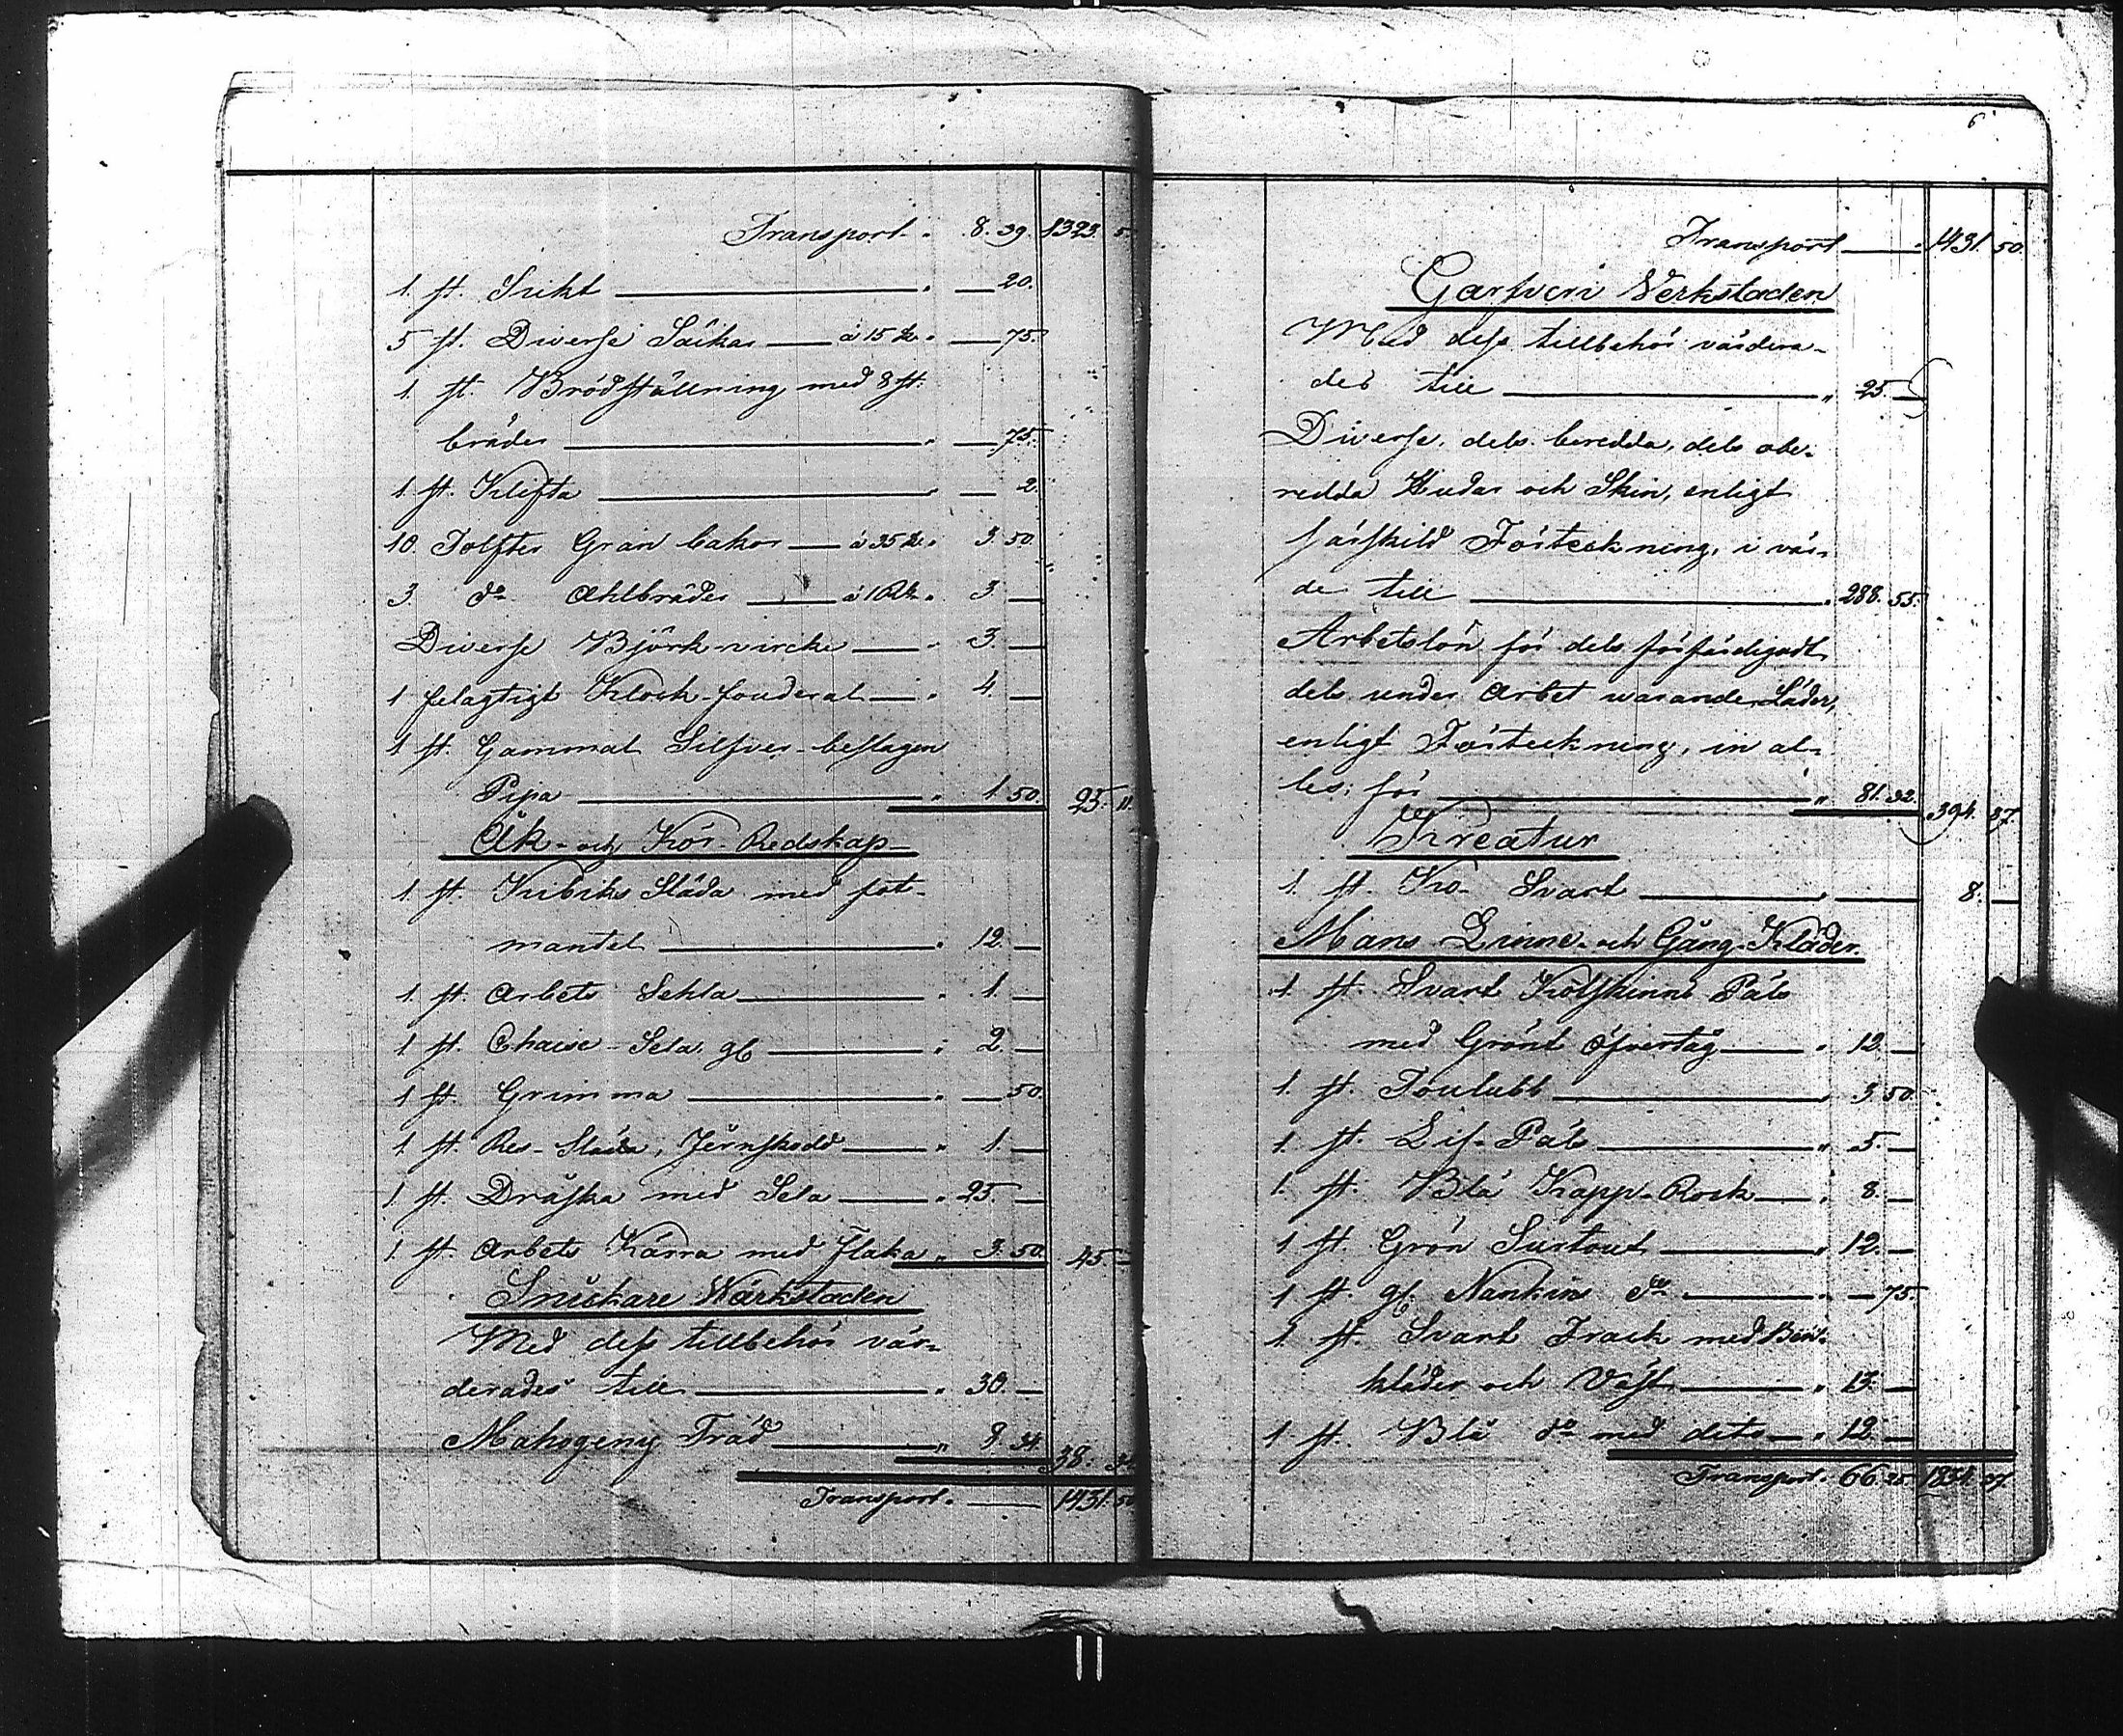 Transport „ 8. 39. 1323. 5
1. st. Sikt „ — 20.
5 st. Diverse Säckar — à 15 k. „ — 75.
1 st. Brödställning med 8 st.
bräder „ — 75.
1 st. Klifta „ — 2.
10 Tolfter Gran bakor — à 35 k. „ 3. 50.
3 do Ahlbräder — à 1 Rb. „ 3. —
Diverse Björk-wircke — „ 3. —
1 felagtigt Klock-fouderal — „ 4 —
1 st. Gammal Silfver-beslagen
Pipa „ 1. 50. 25. 11
Åk- och Kör-Redskap
1 st. Kibiks Släda med fot-
mantel „ 12. —
1. st. Arbets Sehla „ 1. —
1 st. Chaise-Sela gl „ 2. —
1 st. Grimma „ — 50.
1 st. Res-Släda, Jernskodd „ 1. —
1 st. Dräska med Sela „ 25. —
1 st. Arbets Kärra med Flaka „ 3. 50. 45. —
Snickare Wärkstaden
Med dess tillbehör vär-
derades till „ 30. —
Mahogeny Träd „ 8. 34. 38. 34
Transport. — 1431. 50
6
Transport — 1431. 50.
Garfveri Verkstaden
Med dess tillbehör värdera-
des till „ 25. —
Diverse, dels beredda, dels obe-
redda Hudar och Skin, enligt
särskild Förteckning, i vär-
de till „ 288. 55.
Arbetslön för dels förfärdigadt
dels under Arbet warande Läder,
enligt Förteckning, in al-
les; för „ 81. 32. 394. 87.
Kreatur
1. st. Ko- Svart „ — 8. —
Mans Linne- och Gång-Kläder.
1 st. Svart Kölskinns Päls
med Grönt öfvertåg — „ 12. —
1. st. Toulubb „ 3. 50.
1. st. Lif-Päls „ 5. —
1. st. Blå Kapp-Rock „ 8. —
1 st. Grön Surtout „ 12. —
1 st. gl. Nankins do „ — 75.
1. st. Svart Frack med Ben-
kläder och Väst „ 13. —
1 st. Blå do med dito „ 12. —
Transport. 66. 25 1834. 37.